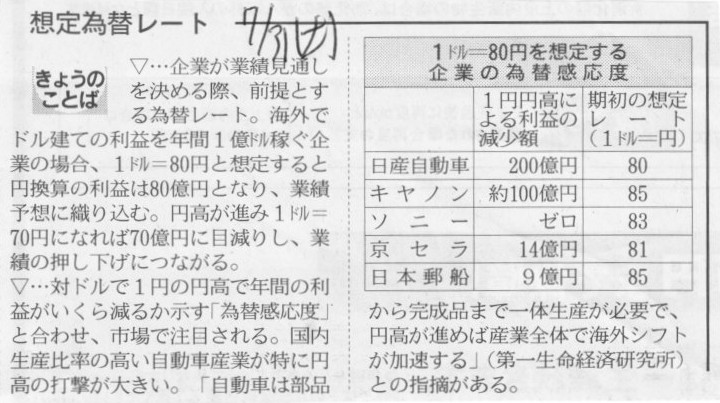 想定為替レート
7/31(土)
きょうの
ことば
▽…企業が業績見通し
を決める際、前提とす
る為替レート。海外で
ドル建ての利益を年間1億㌦稼ぐ企
業の場合、1㌦=80円と想定すると
円換算の利益は80億円となり、業績
予想に織り込む。円高が進み1㌦=
70円になれば70億円に目減りし、業
績の押し下げにつながる。
▽…対ドルで1円の円高で年間の利
益がいくら減るか示す「為替感応度」
と合わせ、市場で注目される。国内
生産比率の高い自動車産業が特に円
高の打撃が大きい。「自動車は部品
1㌦=80円を想定する
企業の為替感応度
1円円高に
よる利益の
減少額
期初の想定
レート
(1㌦=円)
日産自動車 200億円 80
キヤノン 約100億円 85
ソニー ゼロ 83
京セラ 14億円 81
日本郵船 9億円 85
から完成品まで一体生産が必要で、
円高が進めば産業全体で海外シフト
が加速する」(第一生命経済研究所)
との指摘がある。